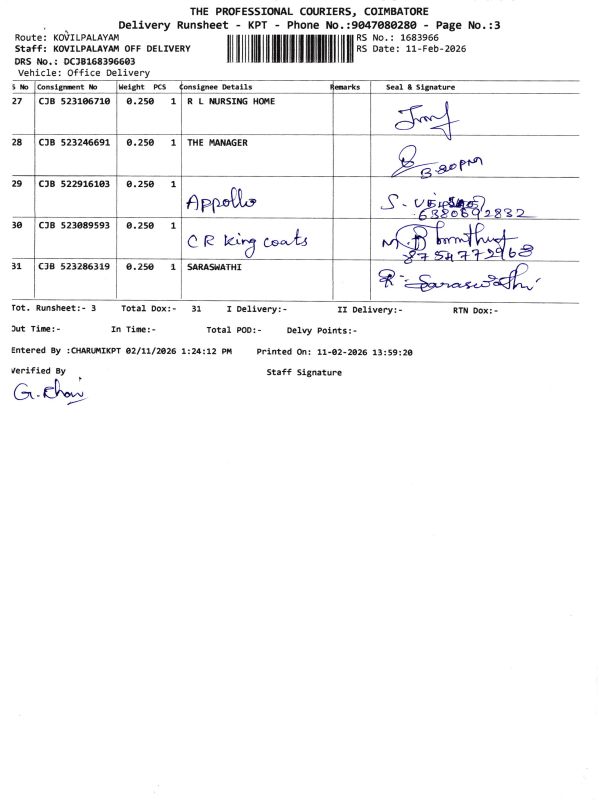 THE PROFESSIONAL COURIERS, COIMBATORE
Delivery Runsheet - KPT - Phone No.:9047080280 - Page No.:3
Route: KOVILPALAYAM RS No.: 1683966
Staff: KOVILPALAYAM OFF DELIVERY RS Date: 11-Feb-2026
DRS No.: DCJB168396603
Vehicle: Office Delivery
S No Consignment No Weight PCS Consignee Details Remarks Seal & Signature
27 CJB 523106710 0.250 1 R L NURSING HOME
28 CJB 523246691 0.250 1 THE MANAGER
29 CJB 522916103 0.250 1 Appollo
6380692832
30 CJB 523089593 0.250 1 CR King coats
8754772968
31 CJB 523286319 0.250 1 SARASWATHI R. Saraswathi
Tot. Runsheet:- 3 Total Dox:- 31 I Delivery:- II Delivery:- RTN Dox:-
Out Time:- In Time:- Total POD:- Delvy Points:-
Entered By :CHARUMIKPT 02/11/2026 1:24:12 PM Printed On: 11-02-2026 13:59:20
Verified By Staff Signature